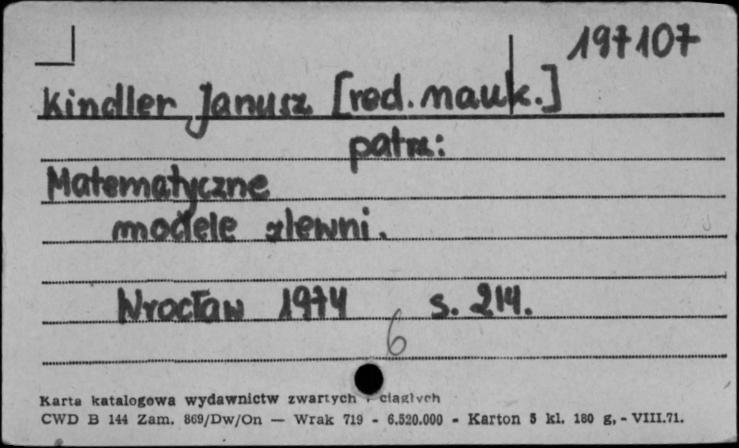 197107
Kindler Janusz [red. nauk.]
patrz:
Matematyczne
modele zlewni.
Wrocław 1974 s. 214.
6
Karta katalogowa wydawnictw zwartych i ciągłych
CWD B 144 Zam. 869/Dw/On — Wrak 719 - 6.520.000 - Karton 5 kl. 180 g, - VIII.71.